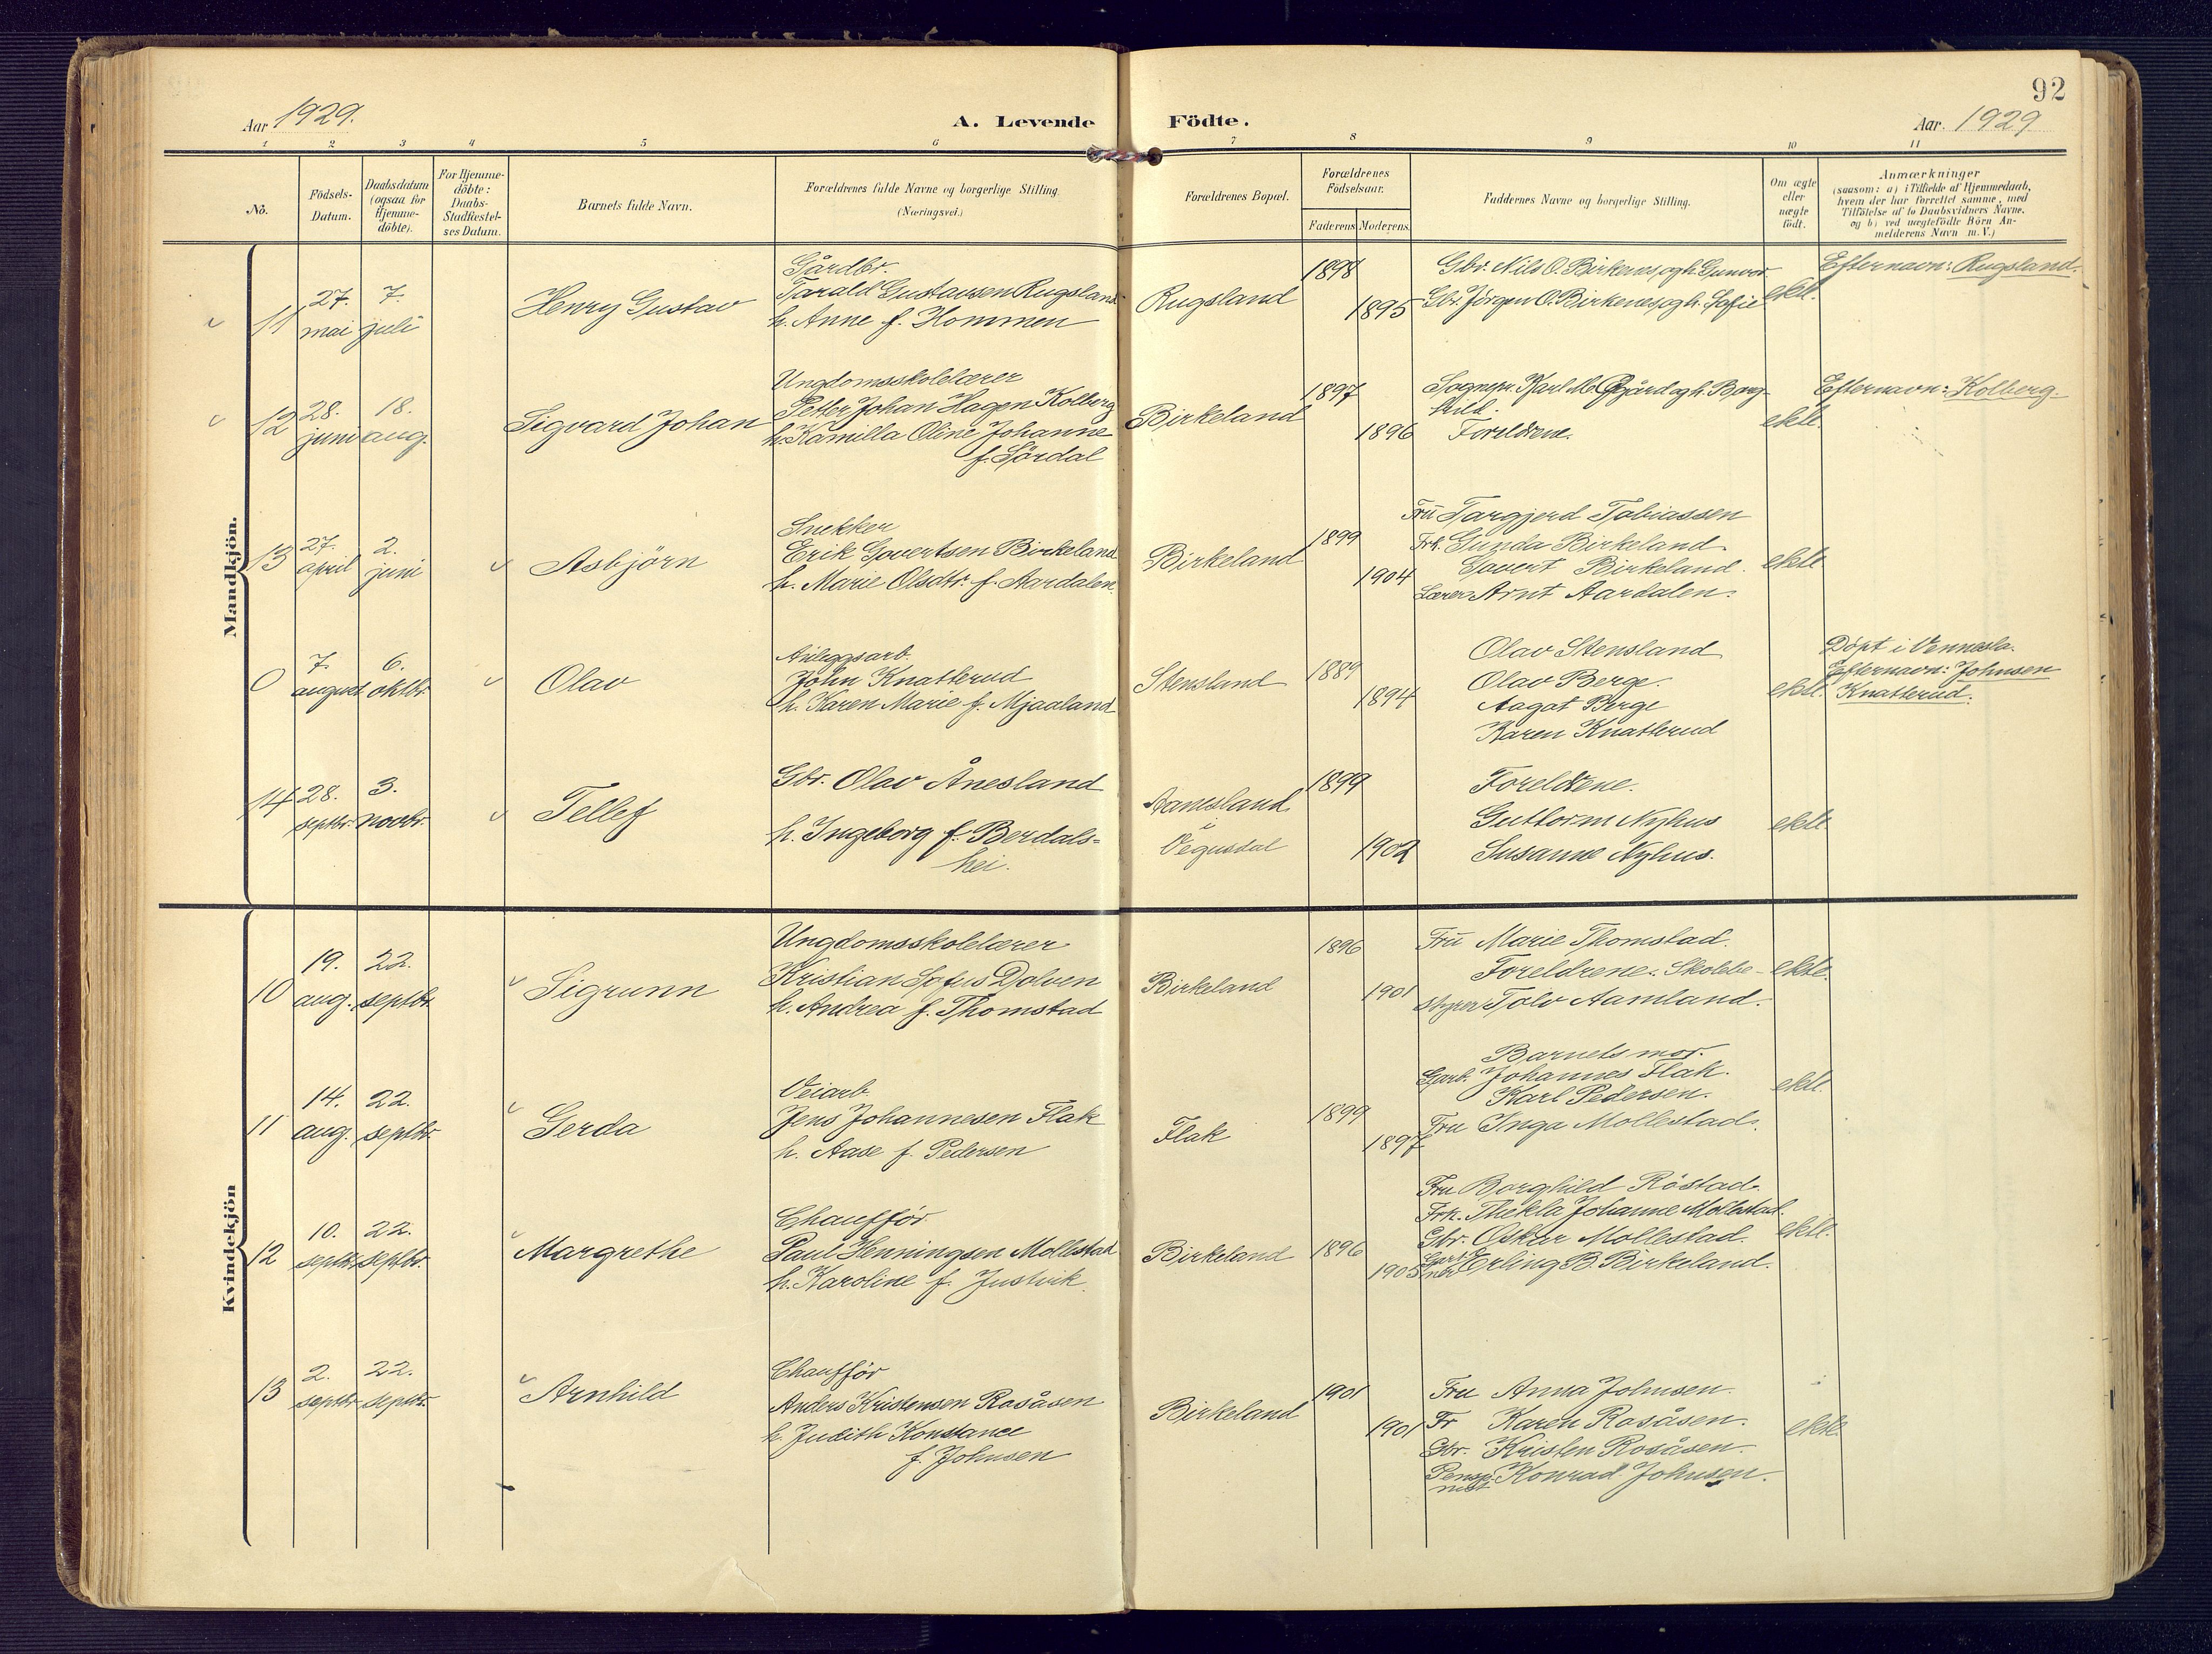 92
Aar 1929.
A. Levende Födte.
Aar. 1929
1 2 3 4 5 6 7 8 9 10 11
No.
Födsels-
Datum.
Daabsdatum
(ogsaa for
Hjemme-
döbte).
For Hjemme-
döbte:
Daabs-
Stadfæstel-
ses Datum.
Barnets fulde Navn.
Forældrenes fulde Navne og borgerlige Stilling.
(Næringsvei.)
Forældrenes Bopæl.
Forældrenes
Födselsaar.
Faderens Moderens
Faddernes Navne og borgerlige Stilling.
Om ægte
eller
uægte
födt.
Anmærkninger
(saasom: a) i Tilfælde af Hjemmedaab,
hvem der har forrettet samme, med
Tilföielse af to Daabsvidners Navne.
og b) ved uægtefödte Börn An-
melderens Navn m. V.)
Mandkjön.
11
27.
mai
7.
juli
Henry Gustav
Gårdbr.
Tarald Gustavsen Rugsland
h. Anne f. Hommen
Rugsland
1898
1895
Gbr. Nils O. Birkenes og h. Gunvor
Gbr. Jörgen O. Birkenes og h. Sofie
ekte.
Efternavn: Rugsland.
12
28.
juni
18.
aug.
Sigvard Johan
Ungdomsskolelærer
Petter Johan Hagen Kolberg
h. Kamilla Oline Johanne
f. Sördal
Birkeland
1897
1896
Sognepr. Karl og h. Borg-
hild.
Foreldrene.
ekte.
Efternavn: Kolberg.
13
27.
april
2.
juni
Asbjörn
Snekker
Erik Govertsen Birkeland
h. Marie Olsdtr. f. Aardalen
Birkeland
1899
1904
Fru Targjerd Tobiassen
Frk. Gunda Birkeland
Govert Birkeland.
Lærer Arnt Aardalen.
ekte
0
7.
august
6.
oktbr.
Olav
Anleggsarb.
John Knatterud
h. Karen Marie f. Mjaaland
Stensland
1889
1894
Olav Stensland
Olav Berge.
Aagot Berge
Karen Knatterud
ekte.
Döpt i Vennesla.
Efternavn: Johnsen
Knatterud.
14
28.
septbr.
3.
novbr.
Tellef
Gbr. Olav Ånesland
h. Ingeborg f. Berdals-
hei.
Aanesland
i
Vegusdal
1899
1902
Foreldrene.
Guttorm Nyhus
Susanne Nyhus.
ekte
Kvindekjön
10
19.
aug.
22.
septbr.
Sigrunn
Ungdomsskolelærer
Kristian Sofus Dolven
h. Andrea f. Thomstad
Birkeland
1896
1901
Fru Marie Thomstad.
Foreldrene. Skolebe-
styrer Tolv Aamland.
ekte.
11
14.
aug.
22.
septbr.
Gerda
Veiarb.
Jens Johannesen Flak
h. Aase f. Pedersen
Flak
1899
1897
Barnets mor.
Garb. Johannes Flak.
Karl Pedersen.
Fru Inga Mollestad.
ekte.
12
10.
septbr.
22.
septbr.
Margrethe
Chaufför
Paul Henningsen Mollestad
h. Karoline f. Justvik
Birkeland
1896
1905
Fru Borghild Röstad.
Frk. Thekla Johanne Mollestad.
Gbr. Oskar Mollestad.
Erling B. Birkeland.
ekte.
13
2.
septbr.
22.
septbr.
Arnhild
Chaufför
Anders Kristensen Rosåsen
h. Judith Konstance
f. Johnsen
Birkeland
1901
1901
Fru Anna Johnsen.
Fr Karen Rosåsen.
Gbr. Kristen Rosåsen.
Konrad Johnsen.
ekte.